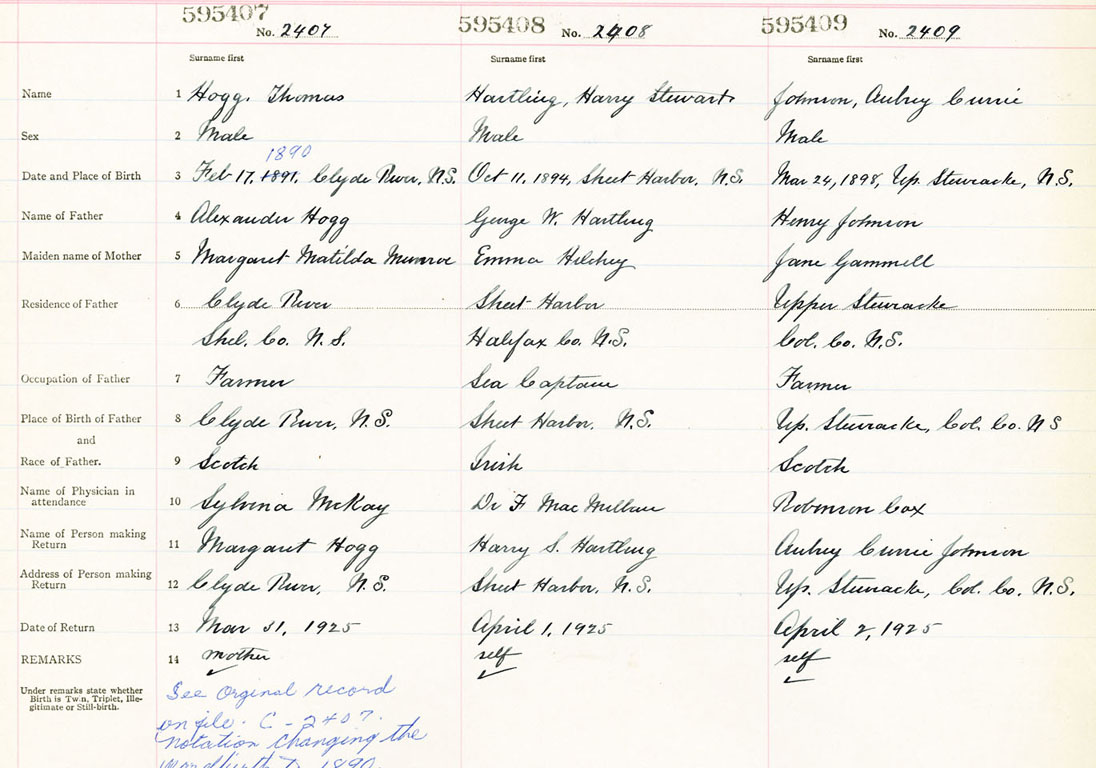 595407 595408 595409
No. 2407 No. 2408 No. 2409
Surname first Surname first Surname first
Name 1 Hogg, Thomas Hartling, Harry Stewart Johnson, Aubrey Currie
Sex 2 Male Male Male
1890
Date and Place of Birth 3 Feb 17, 1891, Clyde River, N.S. Oct 11, 1894, Sheet Harbor, N.S. Mar 24, 1898, Up. Stewiacke, N.S.
Name of Father 4 Alexander Hogg George W. Hartling Henry Johnson
Maiden name of Mother 5 Margaret Matilda Munroe Emma Hilchey Jane Gammell
Residence of Father 6 Clyde River Sheet Harbor Upper Stewiacke
Shel. Co. N.S. Halifax Co. N.S. Col. Co. N.S.
Occupation of Father 7 Farmer Sea Captain Farmer
Place of Birth of Father 8 Clyde River, N.S. Sheet Harbor, N.S. Up. Stewiacke, Col. Co. N S
and
Race of Father. 9 Scotch Irish Scotch
Name of Physician in
attendance 10 Sylvina McKay Dr F MacMillan Robinson Cox
Name of Person making
Return 11 Margaret Hogg Harry S. Hartling Aubrey Currie Johnson
Address of Person making
Return 12 Clyde River, N.S. Sheet Harbor, N.S. Up. Stewiacke, Col. Co. N.S.
Date of Return 13 Mar 31, 1925 April 1, 1925 April 2, 1925
REMARKS 14 mother self self
Under remarks state whether
Birth is Twin, Triplet, Ille-
gitimate or Still-birth.
See Orginal record
on file. C-2407.
notation changing the
1890.